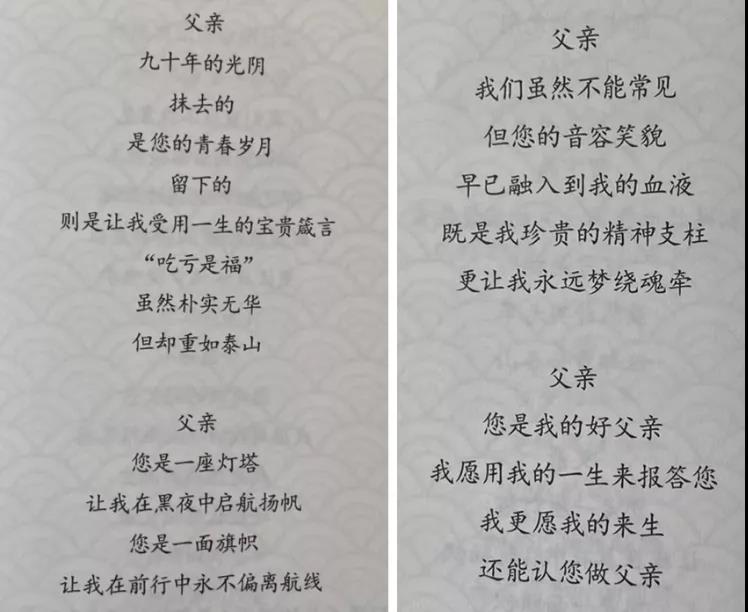 父亲
九十年的光阴
抹去的
是您的青春岁月
留下的
则是让我受用一生的宝贵箴言
“吃亏是福”
虽然朴实无华
但却重如泰山
父亲
您是一座灯塔
让我在黑夜中启航扬帆
您是一面旗帜
让我在前行中永不偏离航线
父亲
我们虽然不能常见
但您的音容笑貌
早已融入到我的血液
既是我珍贵的精神支柱
更让我永远梦绕魂牵
父亲
您是我的好父亲
我愿用我的一生来报答您
我更愿我的来生
还能认您做父亲